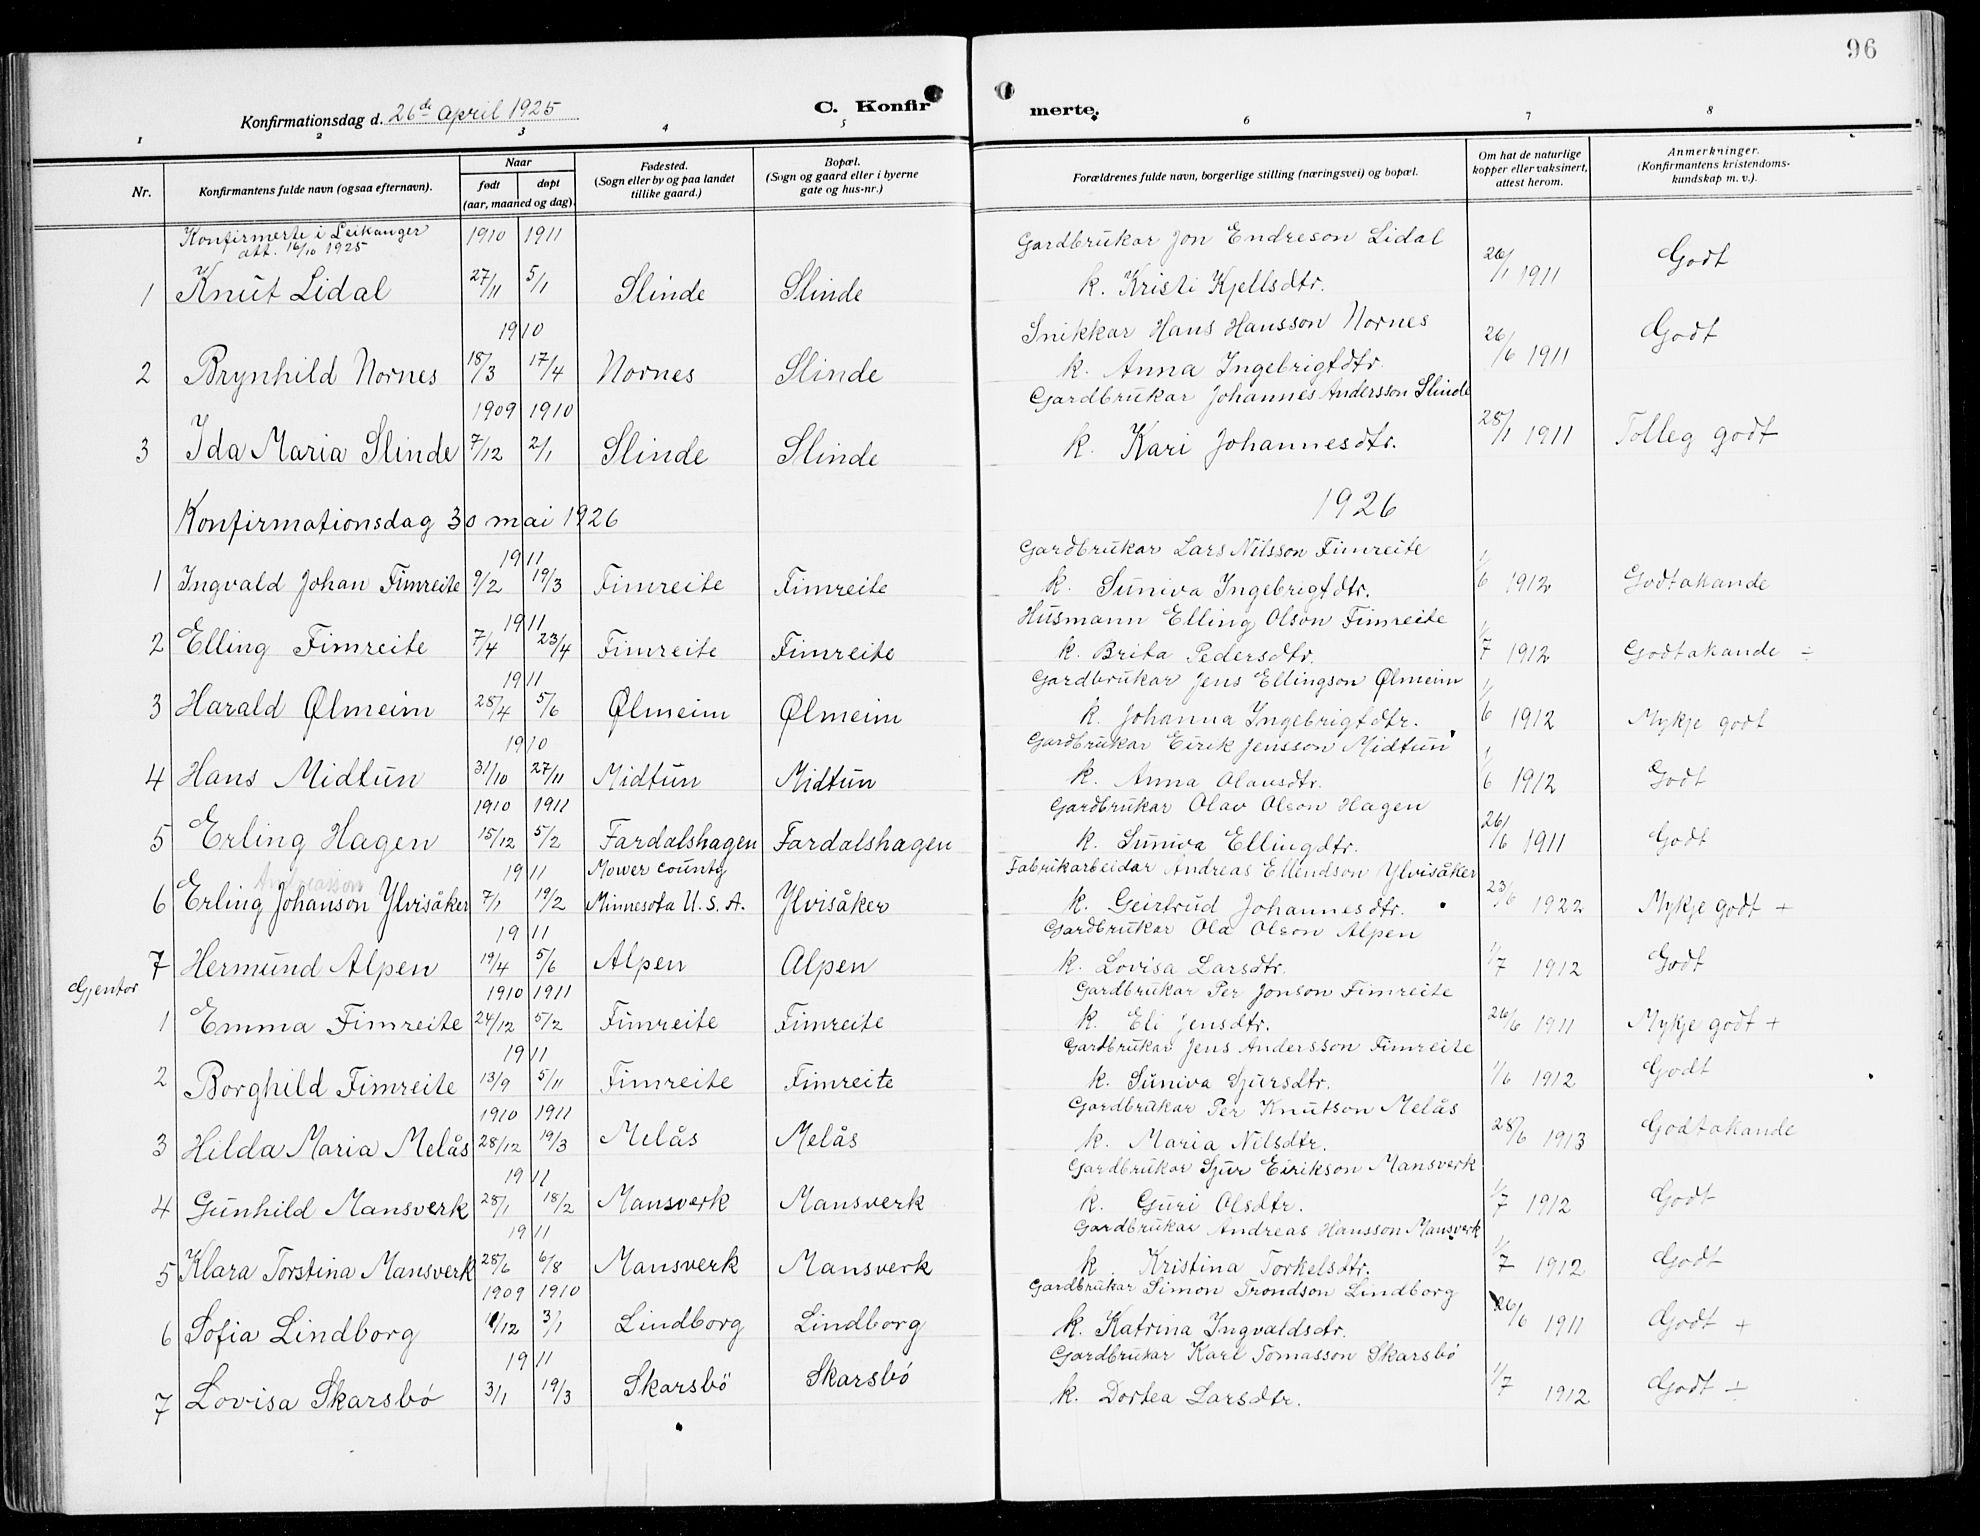 96
Konfirmationsdag d. 26de April 1925
C. Konfirmerte.
1 2 3 4 5 6 7 8
Nr. | Konfirmantens fulde navn (ogsaa efternavn). | Naar født døpt (aar, maaned og dag). | Fødested. (Sogn eller by og paa landet tillike gaard.) | Bopæl. (Sogn og gaard eller i byerne gate og hus-nr.) | Forældrenes fulde navn, borgerlige stilling (næringsvei) og bopæl. | Om hat de naturlige kopper eller vaksinert, attest herom. | Anmerkninger. (Konfirmantens kristendomskundskap m. v.).
Konfirmerte i Leikanger 1910 1911 Gardbrukar Jon Endreson Lidal
att. 16/10 1925
1 Knut Lidal 27/11 5/1 Slinde Slinde k. Kristi Kjellsdtr. 26/1 1911 Godt
1910 Snikkar Hans Hansson Nornes
2 Brynhild Nornes 18/3 17/4 Nornes Slinde k. Anna Ingebrigtdtr. 26/6 1911 Godt
1909 1910 Gardbrukar Johannes Andersson Slinde
3 Ida Maria Slinde 7/12 2/1 Slinde Slinde k. Kari Johannesdtr. 28/1 1911 Tolleg godt
Konfirmationsdag 30 mai 1926 1926
1911 Gardbrukar Lars Nilsson Fimreite
1 Ingvald Johan Fimreite 9/2 19/3 Fimreite Fimreite k. Suniva Ingebrigtdtr. 1/6 1912 Godtakande
1911 Husmann Elling Olson Fimreite
2 Elling Fimreite 7/4 23/4 Fimreite Fimreite k. Brita Pedersdtr. 1/7 1912 Godtakande ÷
1911 Gardbrukar Jens Ellingson Ølmeim
3 Harald Ølmeim 28/4 5/6 Ølmeim Ølmeim k. Johanna Ingebrigtdtr. 1/6 1912 Mykje godt
1910 Gardbrukar Eirik Jensson Midtun
4 Hans Midtun 31/10 27/11 Midtun Midtun k. Anna Olavsdtr. 1/6 1912 Godt
1910 1911 Gardbrukar Olav Olson Hagen
5 Erling Hagen 15/12 5/2 Fardalshagen Fardalshagen k. Suniva Ellingdtr. 26/6 1911 Godt
Andreasson 1911 Mower county Fabrikarbeidar Andreas Ellendson Ylvisåker
6 Erling Johanson Ylvisåker 7/1 19/2 Minnesota U. S. A. Ylvisåker k. Geirtrud Johannesdtr. 23/6 1922 Mykje godt +
1911 Gardbrukar Ola Olson Alpen
7 Hermund Alpen 19/4 5/6 Alpen Alpen k. Lovisa Larsdtr. 1/7 1912 Godt
Gjentor 1910 1911 Gardbrukar Per Jonson Fimreite
1 Emma Fimreite 24/12 5/2 Fimreite Fimreite k. Eli Jensdtr. 26/6 1911 Mykje godt +
1911 Gardbrukar Jens Andersson Fimreite
2 Borghild Fimreite 13/9 5/11 Fimreite Fimreite k. Suniva Sjursdtr. 1/6 1912 Godt
1910 1911 Gardbrukar Per Knutson Melås
3 Hilda Maria Melås 28/12 19/3 Melås Melås k. Maria Nilsdtr. 28/6 1913 Godtakande
1911 Gardbrukar Sjur Eirikson Mansverk
4 Gunhild Mansverk 28/1 18/2 Mansverk Mansverk k. Guri Olsdtr. 1/7 1912 Godt
1911 Gardbrukar Andreas Hansson Mansverk
5 Klara Torstina Mansverk 28/6 6/8 Mansverk Mansverk k. Kristina Torkelsdtr. 1/7 1912 Godt
1909 1910 Gardbrukar Simon Trondson Lindborg
6 Sofia Lindborg /12 3/1 Lindborg Lindborg k. Katrina Ingvaldsdtr. 26/6 1911 Godt +
1911 Gardbrukar Karl Tomasson Skarsbö
7 Lovisa Skarsbö 3/1 19/3 Skarsbö Skarsbö k. Dortea Larsdtr. 1/7 1912 Godt ÷